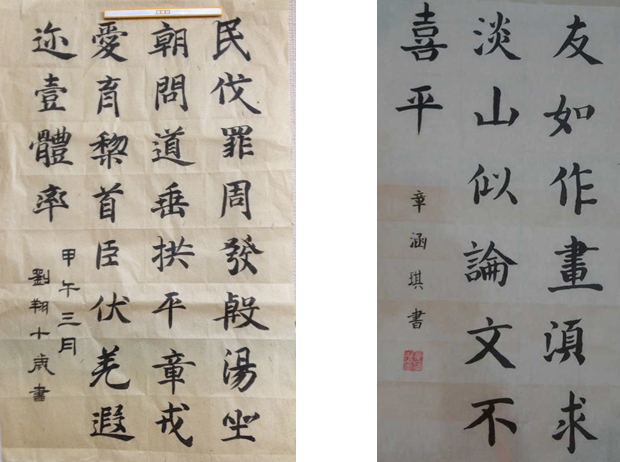 民伐罪周發殷湯坐
朝問道垂拱平章戎
愛育黎首臣伏羌遐
迩壹體率
甲午三月
劉翔十歲書
友如作畫湏求
淡山似論文不
喜平
章涵琪書